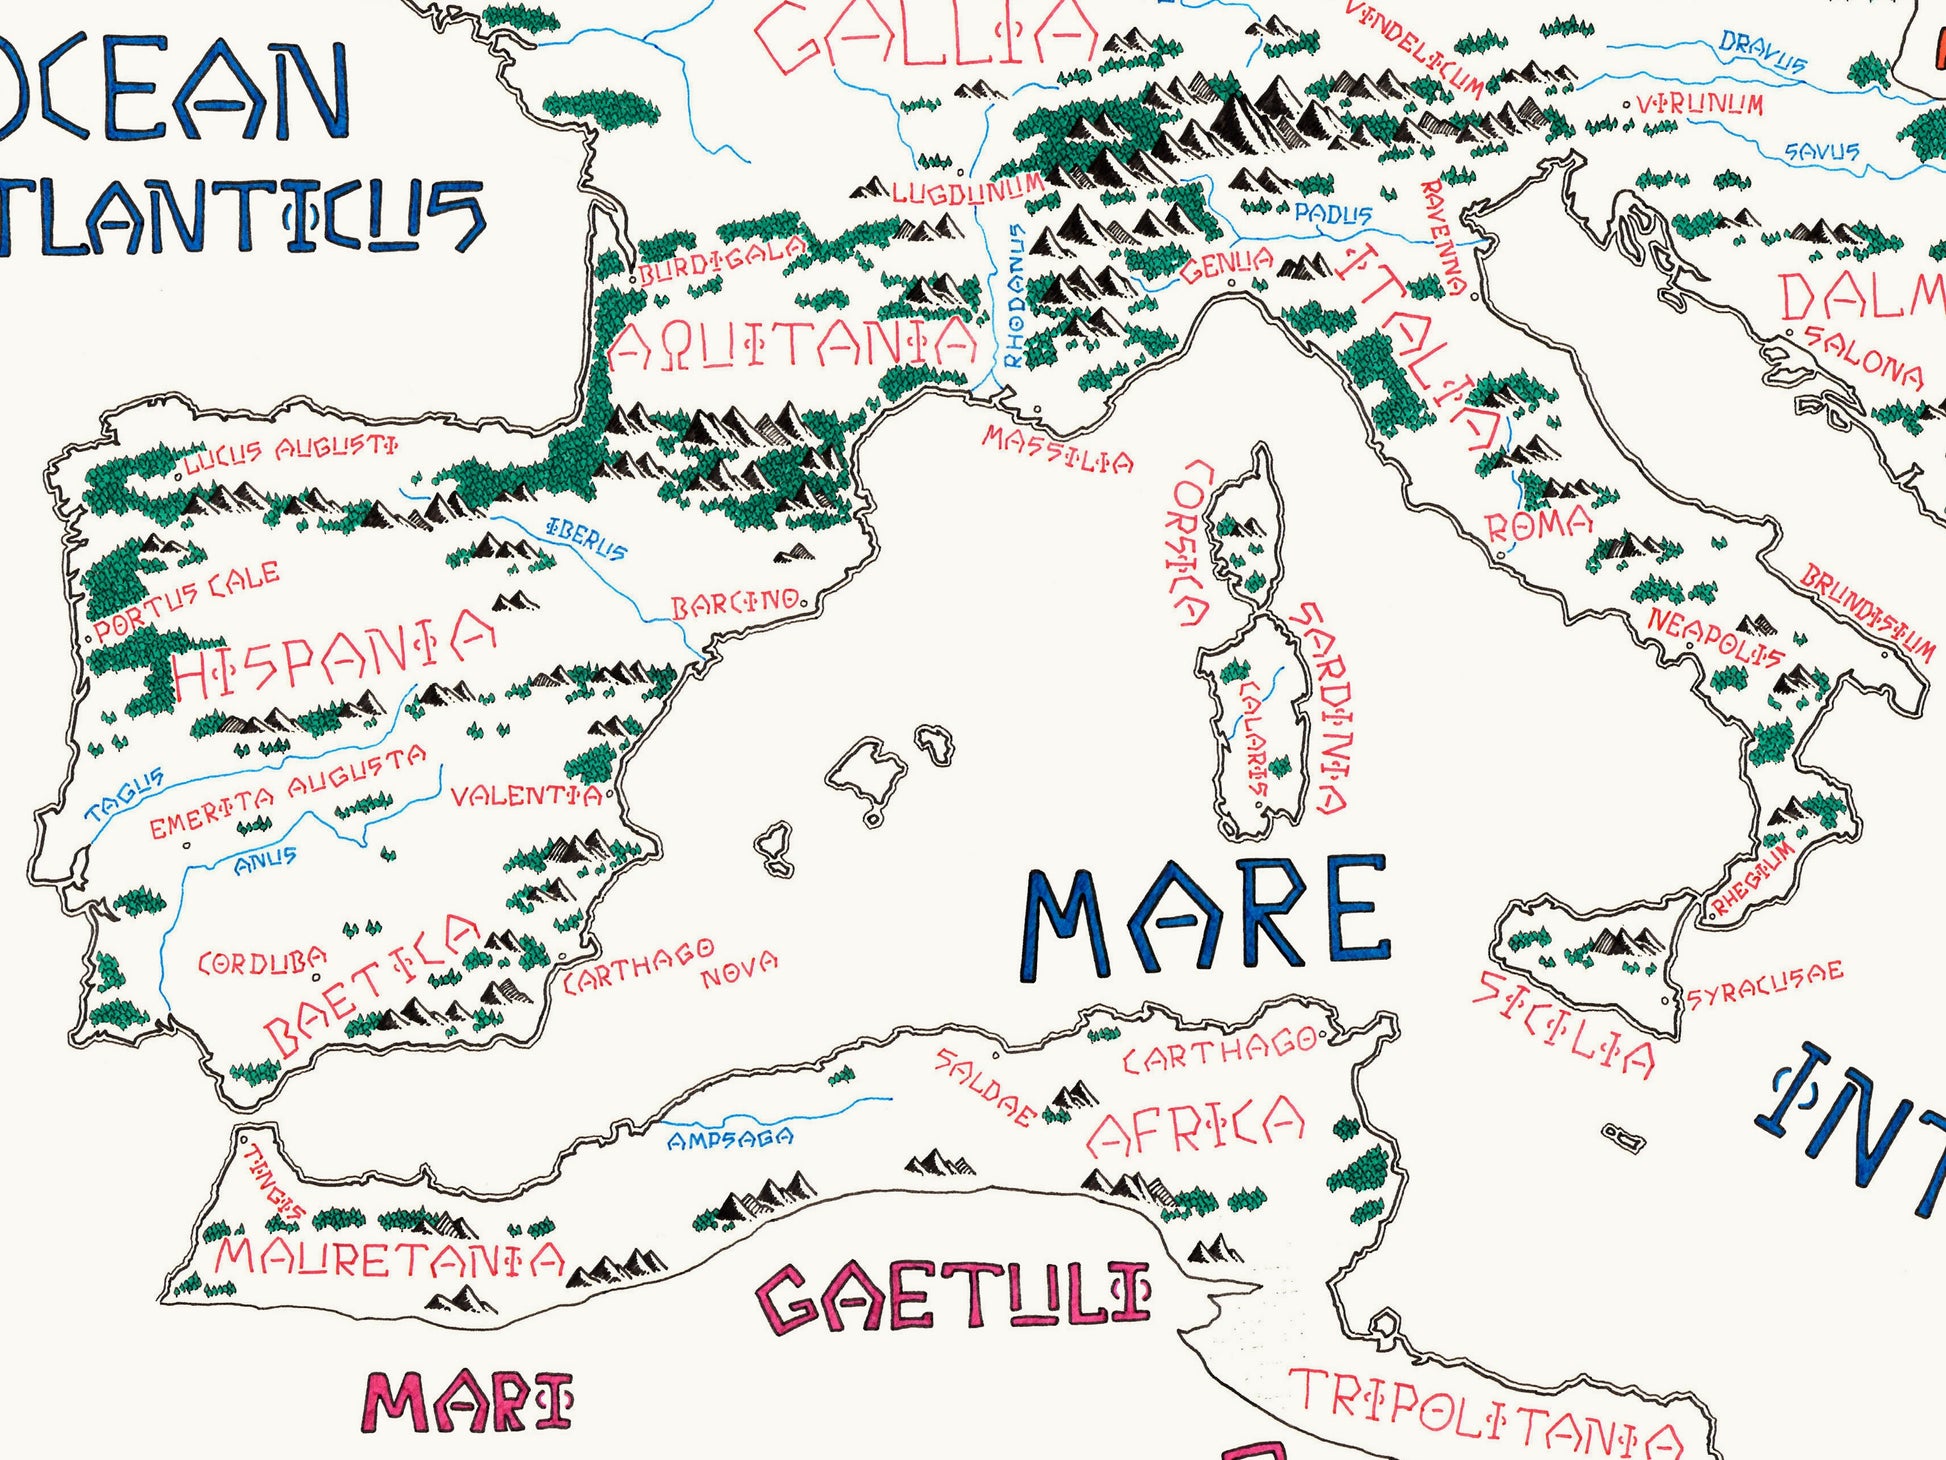 OCEAN
ATLANTICUS
GALLIA
VINDELICUM
DRAVUS
VIRUNUM
SAVUS
LUGDUNUM
BURDIGALA
RHODANUS
PADUS
RAVENNA
GENUA
ITALIA
DALM
SALONA
AQUITANIA
LUCUS AUGUSTI
MASSILIA
CORSICA
ROMA
IBERUS
BARCINO
PORTUS CALE
HISPANIA
SARDINIA
CALARIS
NEAPOLIS
BRUNDISIUM
TAGUS
EMERITA AUGUSTA
VALENTIA
ANUS
CORDUBA
BAETICA
CARTHAGO
NOVA
MARE
RHEGIUM
SICILIA
SYRACUSAE
INT
SALDAE
CARTHAGO
AFRICA
AMPSAGA
TINGIS
MAURETANIA
GAETULI
MARI
TRIPOLITANIA